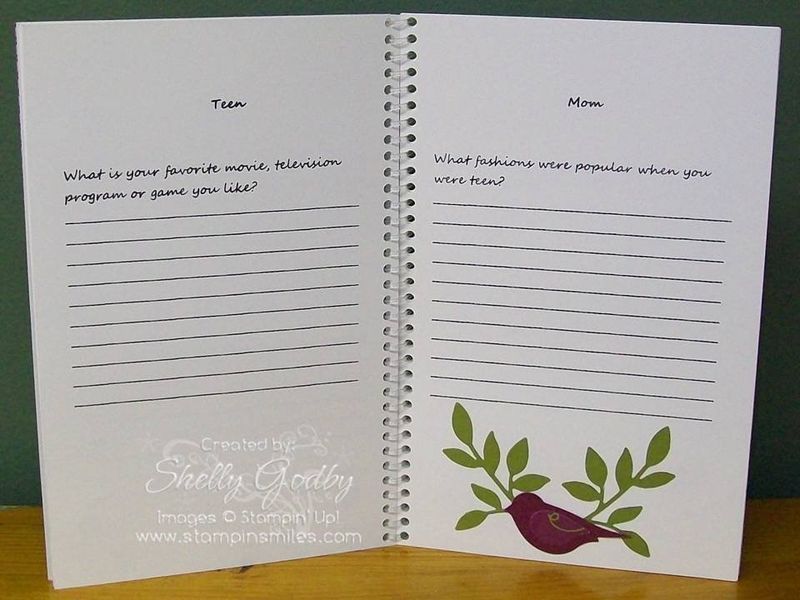 Teen
What is your favorite movie, television
program or game you like?
Mom
What fashions were popular when you
were teen?
Created by:
Shelly Godby
Images © Stampin' Up!
www.stampinsmiles.com